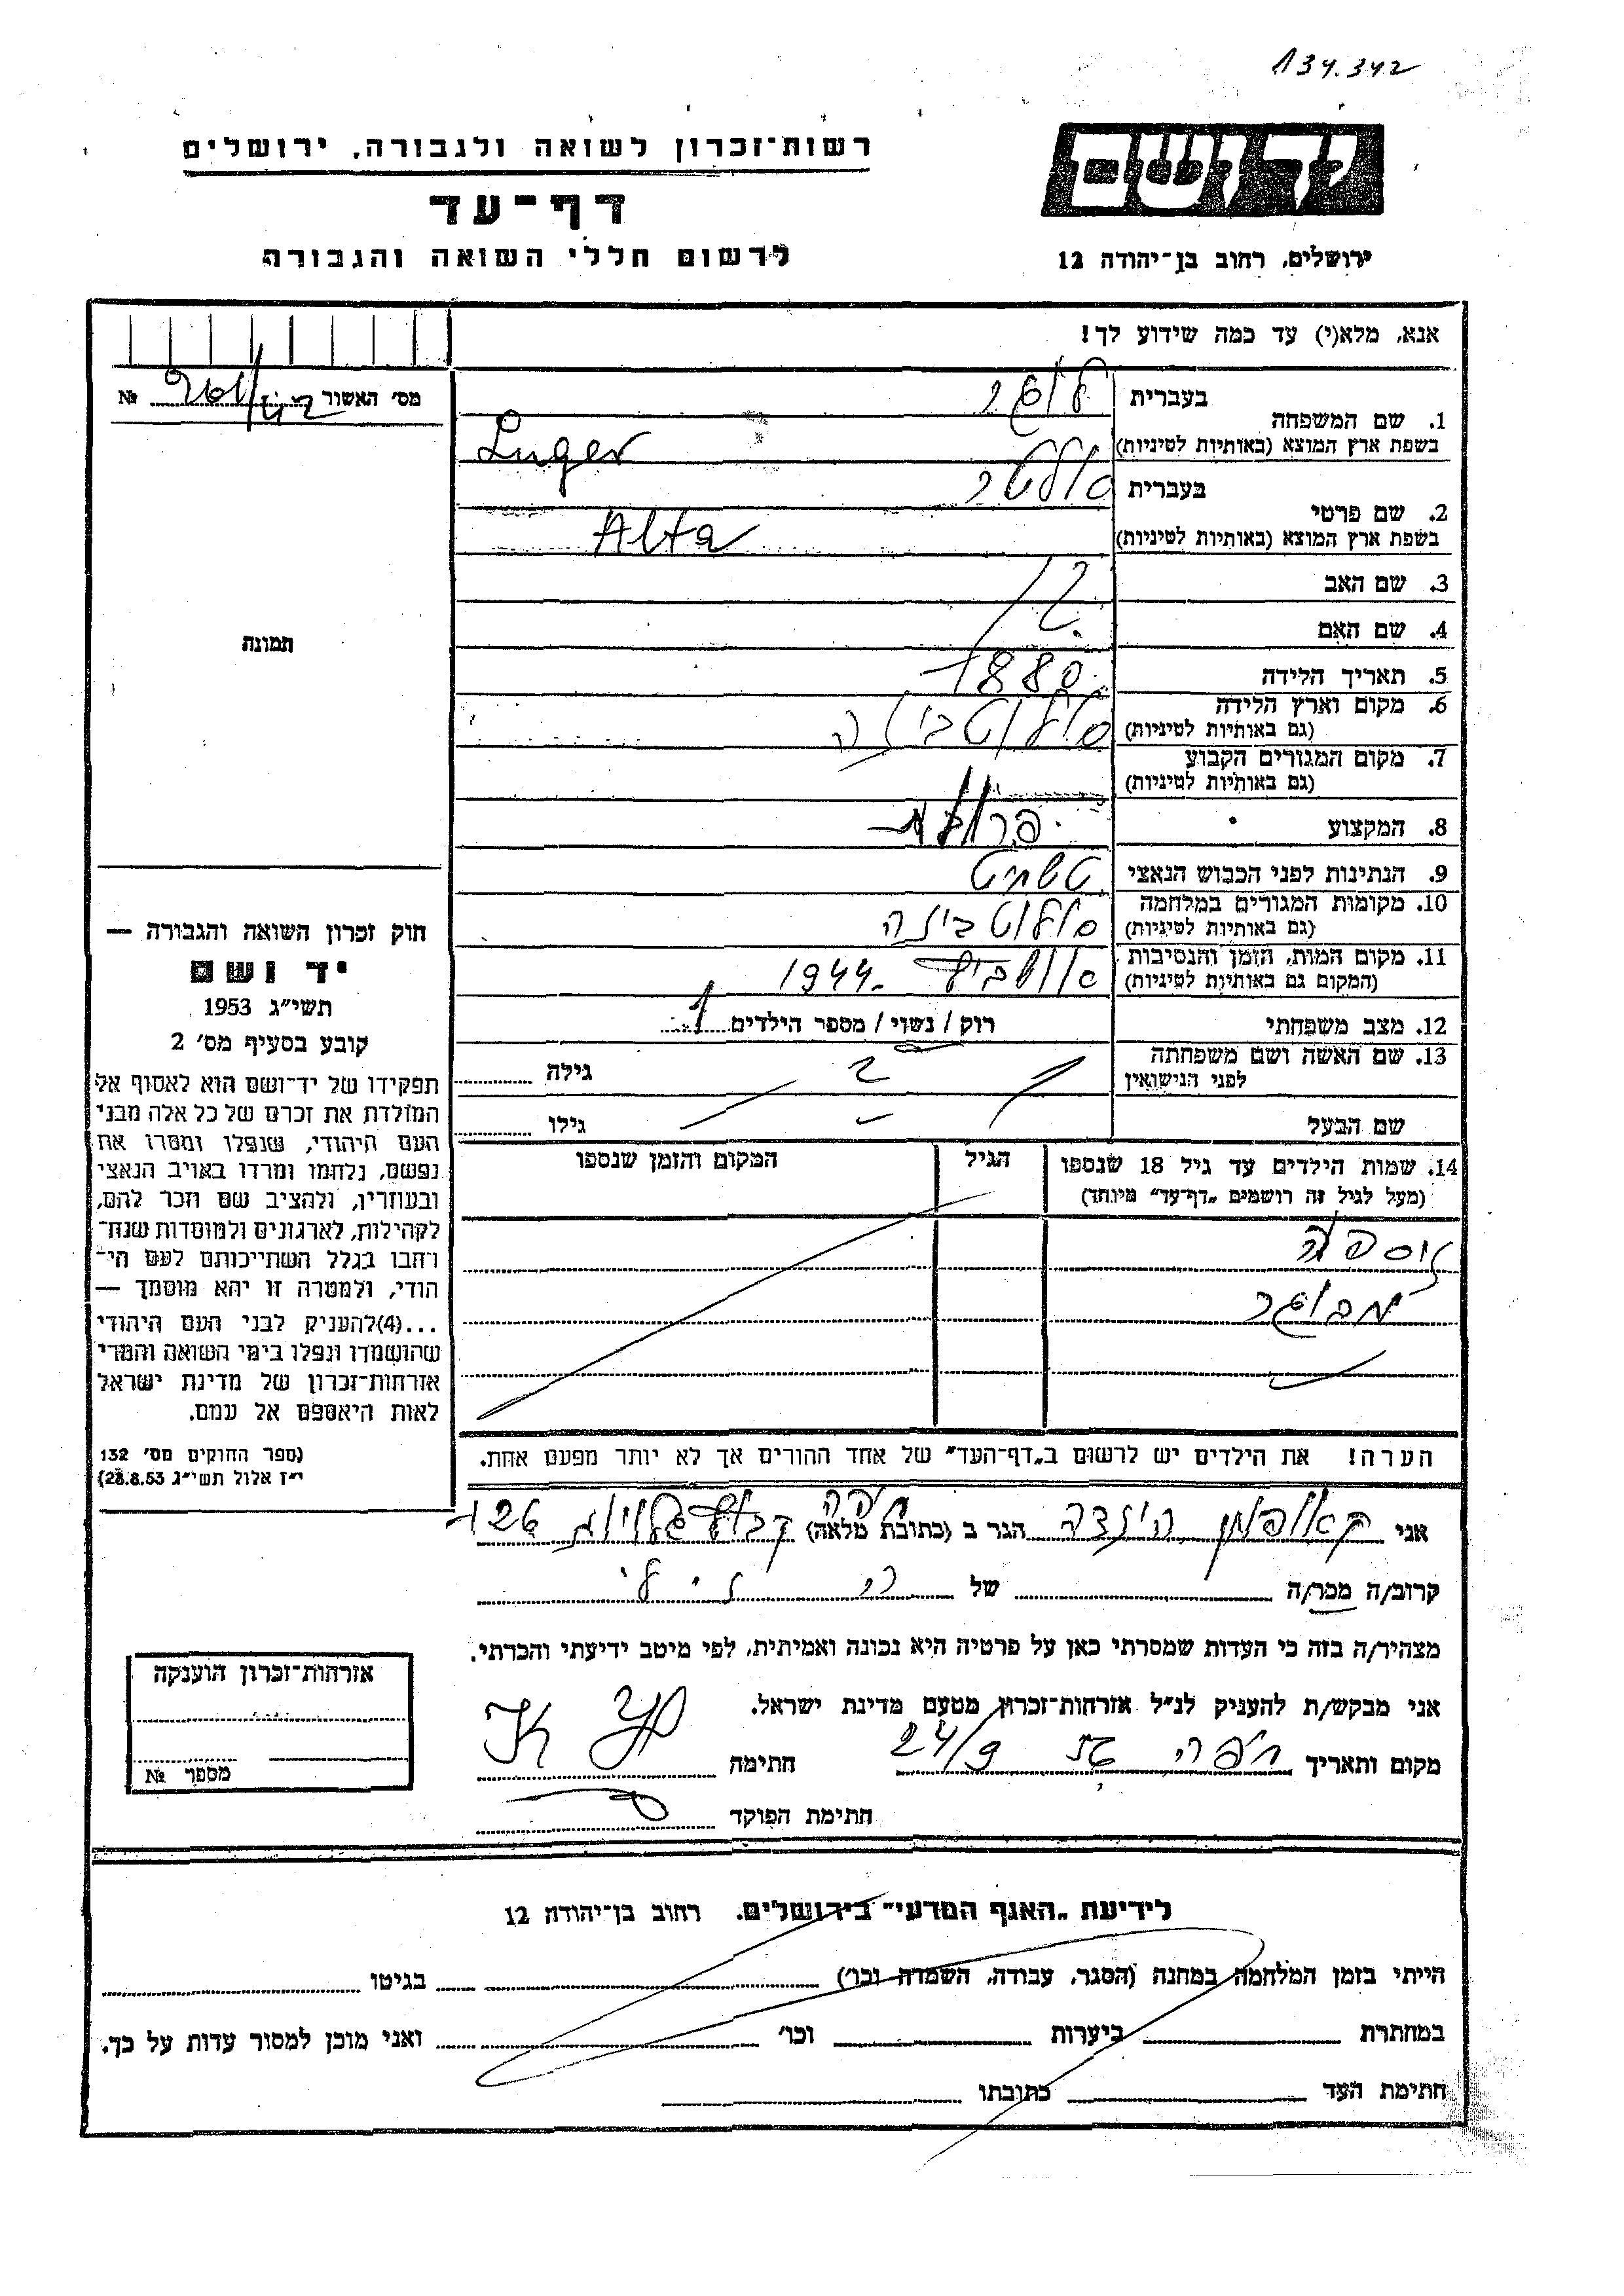 134.342
יד ושם
רשות־זכרון לשואה ולגבורה, ירושלים
דף־עד
לרשום חללי השואה והגבורה
ירושלים, רחוב בן־יהודה 12
אנא, מלא(י) עד כמה שידוע לך!
מס' האשור № 
בעברית לוגר
1. שם המשפחה
בשפת ארץ המוצא (באותיות לטיניות) Luger
בעברית
2. שם פרטי
בשפת ארץ המוצא (באותיות לטיניות) Alta
3. שם האב ?
4. שם האם
5. תאריך הלידה 1880
6. מקום וארץ הלידה
(גם באותיות לטיניות)
7. מקום המגורים הקבוע
(גם באותיות לטיניות)
8. המקצוע
9. הנתינות לפני הכבוש הנאצי
10. מקומות המגורים במלחמה
(גם באותיות לטיניות)
11. מקום המות, הזמן והנסיבות 1944
(המקום גם באותיות לטיניות)
12. מצב משפחתי רוק / נשוי / מספר הילדים 1
13. שם האשה ושם משפחתה
לפני הנישואין ? גילה
שם הבעל גילו
14. שמות הילדים עד גיל 18 שנספו
(מעל לגיל זה רושמים „דף־עד" מיוחד)
הגיל
המקום והזמן שנספו
מבוגר
הערה! את הילדים יש לרשום ב„דף־העד" של אחד ההורים אך לא יותר מפעם אחת.
תמונה
חוק זכרון השואה והגבורה —
יד ושם
תשי"ג 1953
קובע בסעיף מס' 2
תפקידו של יד־ושם הוא לאסוף אל
המולדת את זכרם של כל אלה מבני
העם היהודי, שנפלו ומסרו את
נפשם, נלחמו ומרדו באויב הנאצי
ובעוזריו, ולהציב שם וזכר להם,
לקהילות, לארגונים ולמוסדות שנח־
רחבו בגלל השתייכותם לעם הי־
הודי, ולמטרה זו יהא מוסמך —
...(4)להעניק לבני העם היהודי
שהושמדו ונפלו בימי השואה והמרי
אזרחות־זכרון של מדינת ישראל
לאות היאספם אל עמם.
(ספר החוקים מס' 132
י"ז אלול תשי"ג 28.8.53)
אני קאופמן הינדה הגר ב (כתובת מלאה) חיפה קבוץ גלויות 126
קרוב/ה מכר/ה של
מצהיר/ה בזה כי העדות שמסרתי כאן על פרטיה היא נכונה ואמיתית, לפי מיטב ידיעתי והכרתי.
אני מבקש/ת להעניק לנ"ל אזרחות־זכרון מטעם מדינת ישראל.
מקום ותאריך חיפה 24/9 חתימה
חתימת הפוקד
אזרחות־זכרון הוענקה
מספר №
לידיעת „האגף המדעי" בירושלים, רחוב בן־יהודה 12
הייתי בזמן המלחמה במחנה (הסגר, עבודה, השמדה וכו') בגיטו
במחתרת ביערות וכו' ואני מוכן למסור עדות על כך.
חתימת העד כתובתו